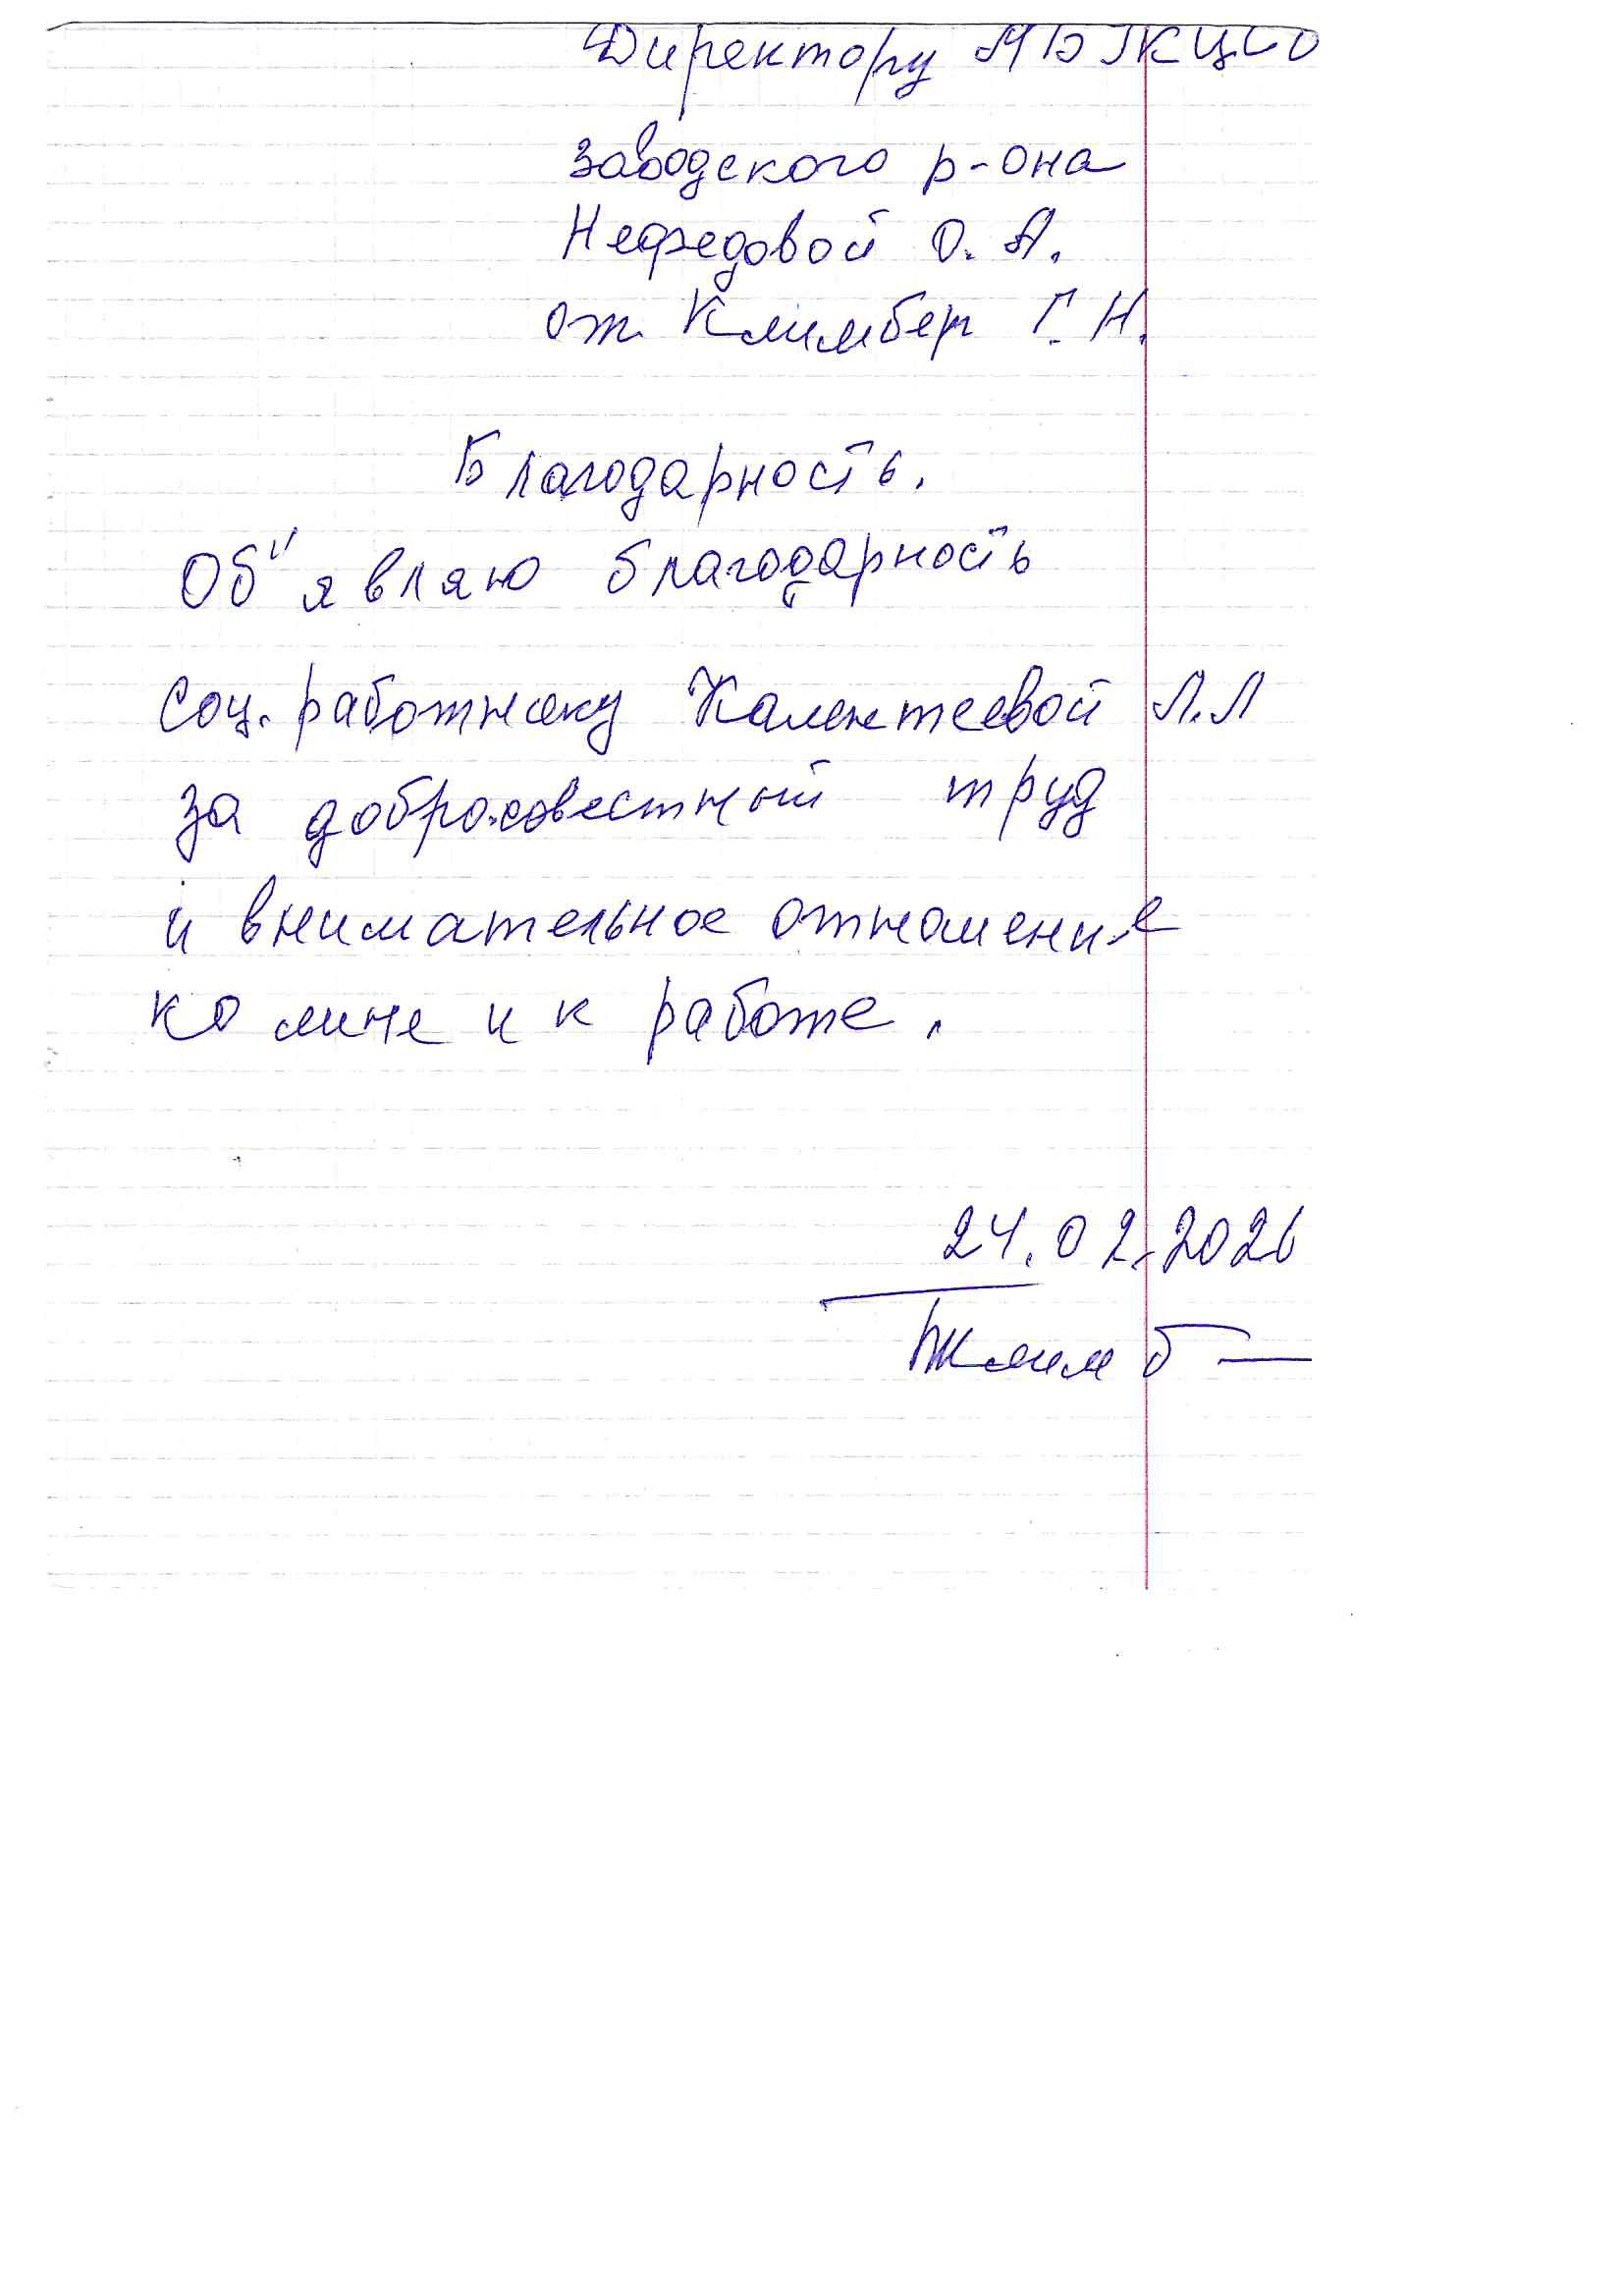 Директору МБУКЦСО
Заводского р-она
Нефедовой О. А.
от Климберг Г. Н.
Благодарность.
Об"являю благодарность
Соц. работнику Калентеевой Л.Л
за добросовестный труд
и внимательное отношение
ко мне и к работе.
24.02.2026
Климб